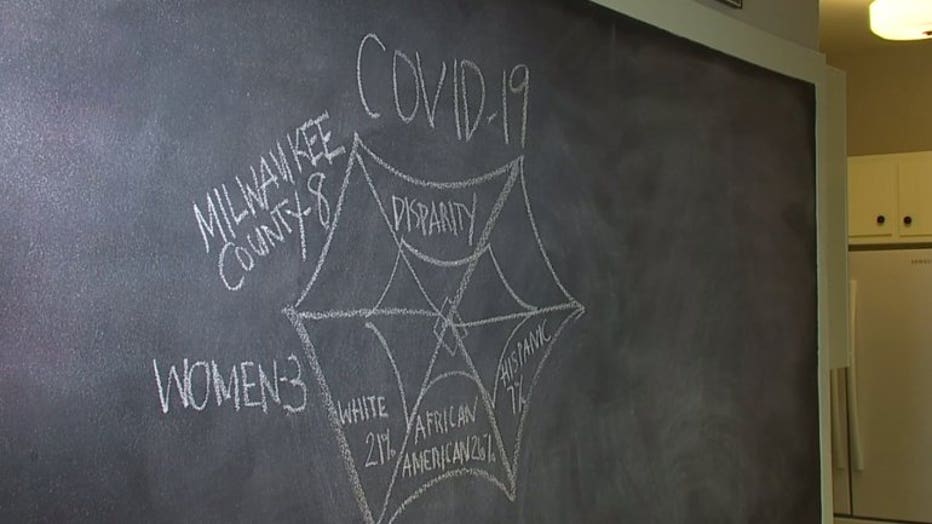 COVID-19
MILWAUKEE
COUNTY-8
DISPARITY
WOMEN-3
WHITE
21%
AFRICAN
AMERICAN 26%
HISPANIC
7%
SAMSUNG